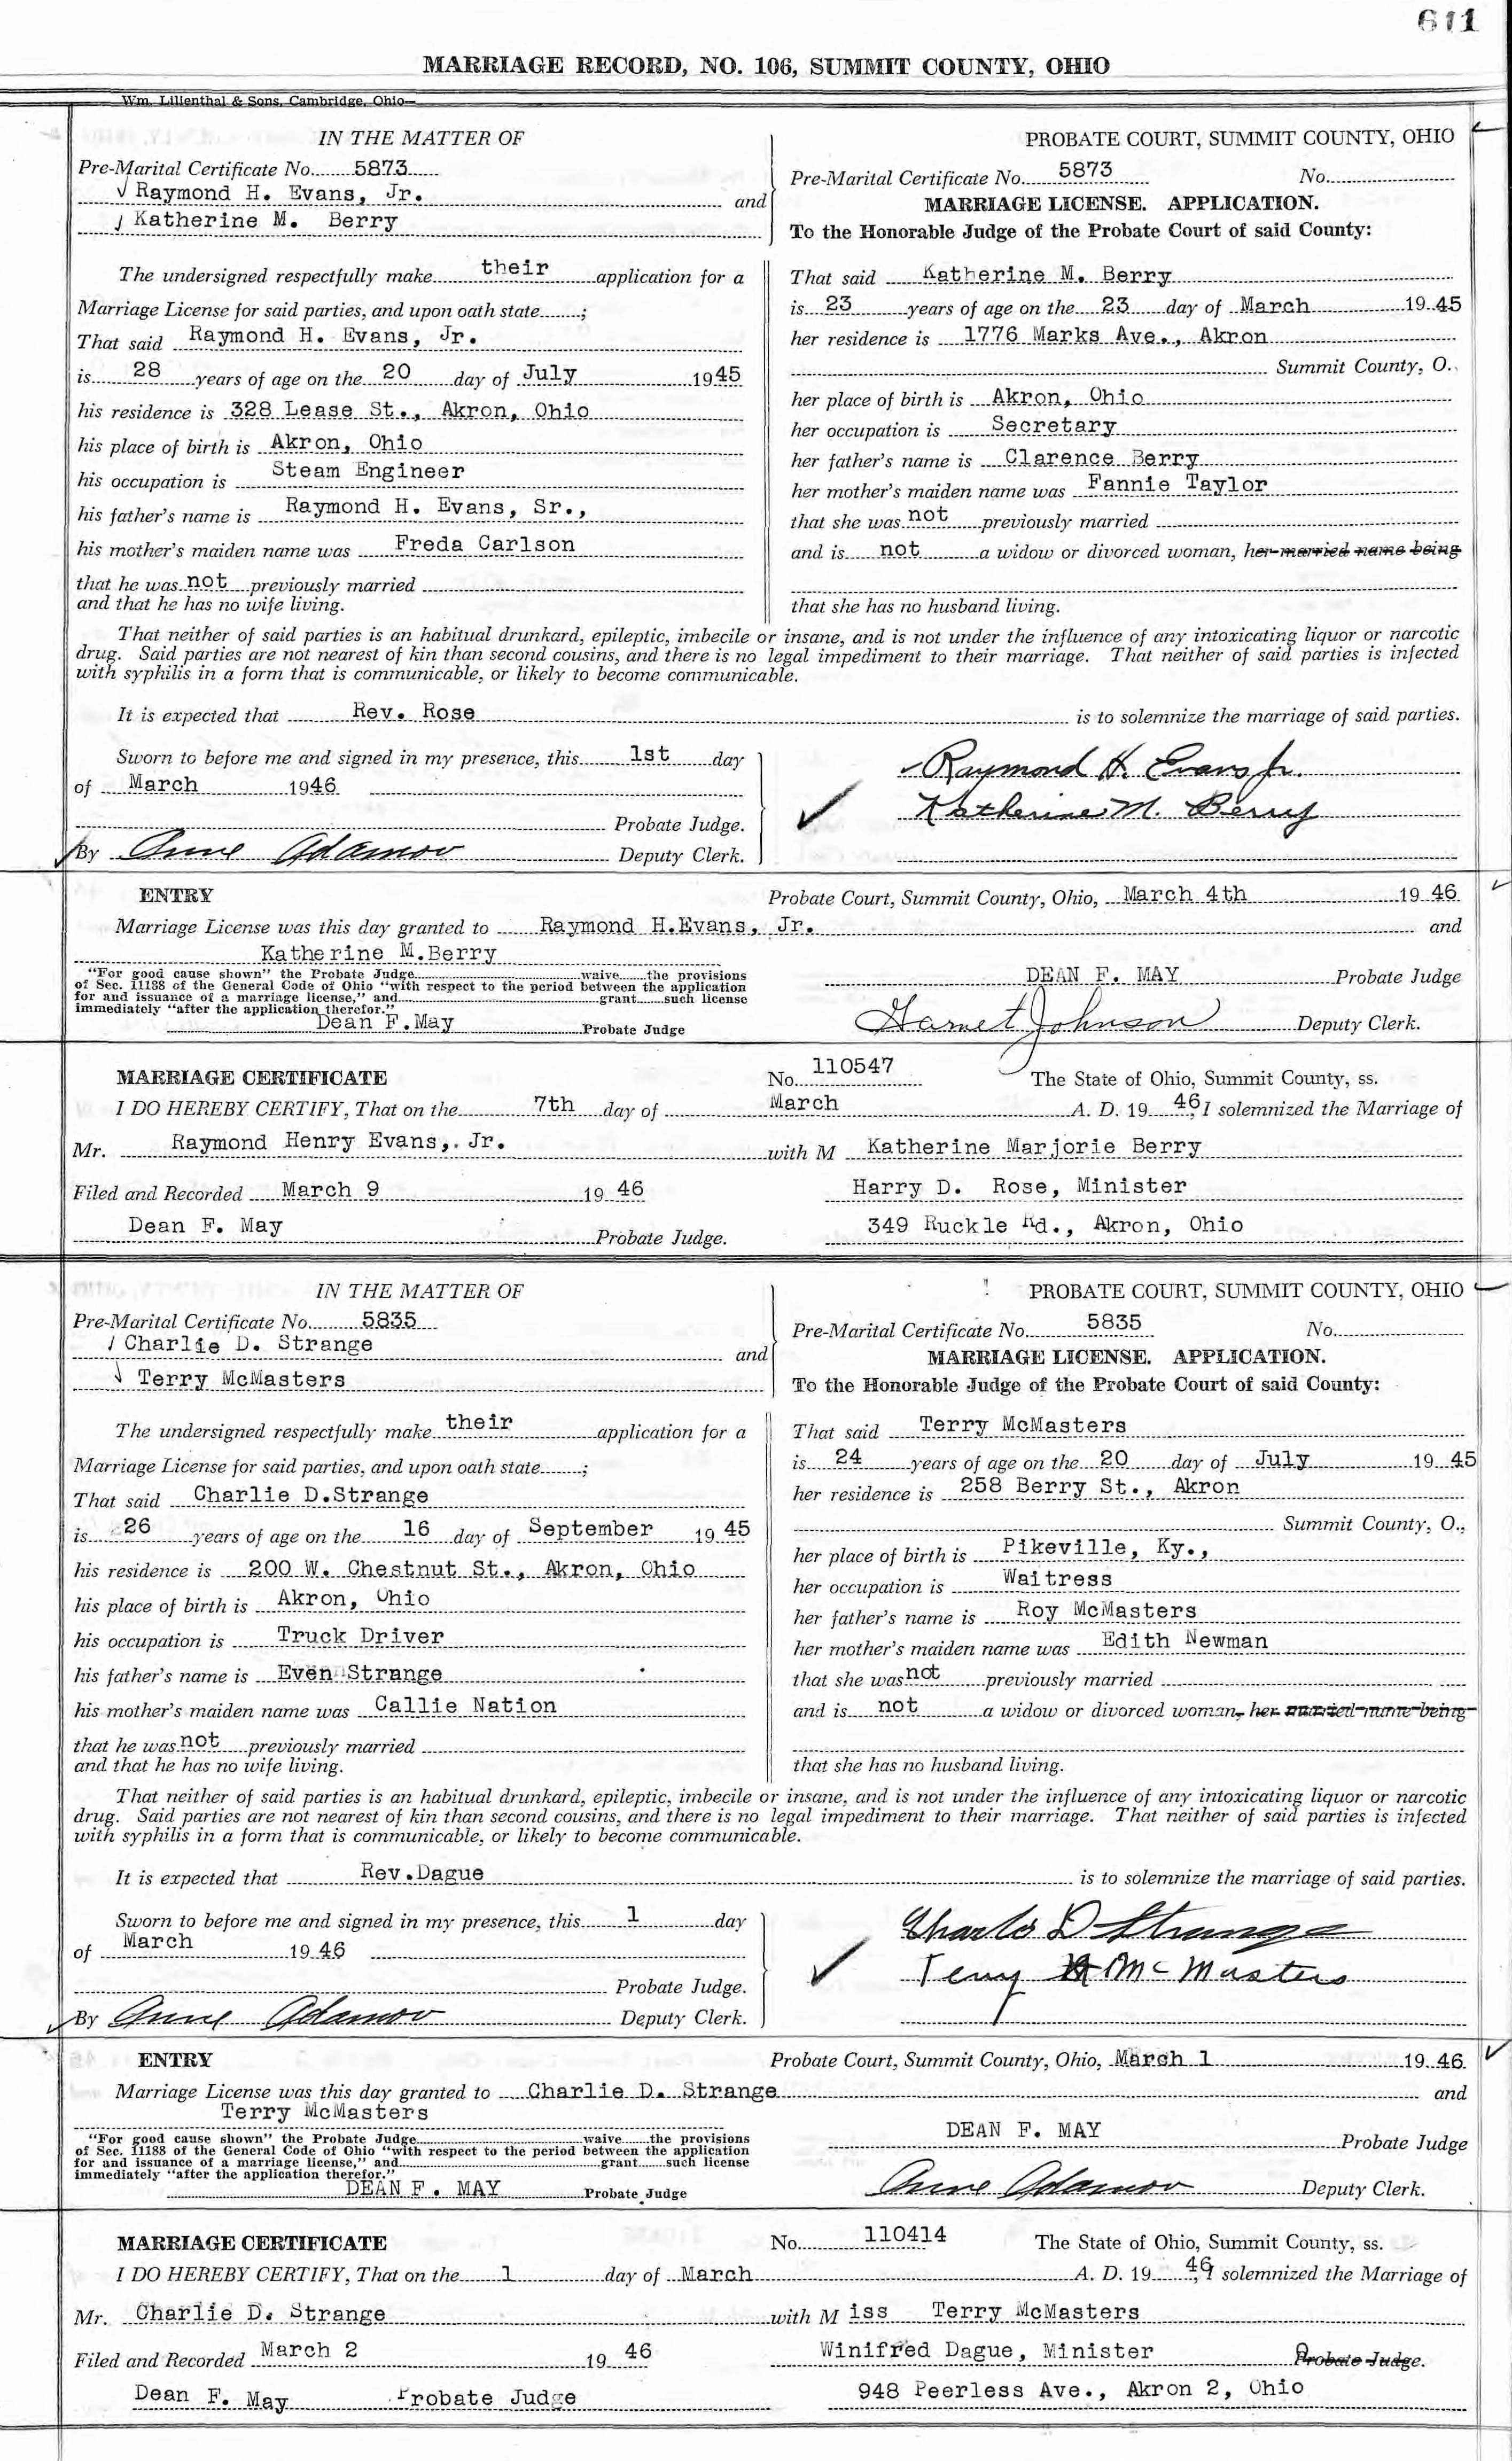 611
MARRIAGE RECORD, NO. 106, SUMMIT COUNTY, OHIO
Wm. Lilienthal & Sons, Cambridge, Ohio—
IN THE MATTER OF
Pre-Marital Certificate No. 5873
Raymond H. Evans, Jr. and
Katherine M. Berry
PROBATE COURT, SUMMIT COUNTY, OHIO
Pre-Marital Certificate No. 5873 No.
MARRIAGE LICENSE. APPLICATION.
To the Honorable Judge of the Probate Court of said County:
The undersigned respectfully make their application for a
Marriage License for said parties, and upon oath state ;
That said Raymond H. Evans, Jr.
is 28 years of age on the 20 day of July 1945
his residence is 328 Lease St., Akron, Ohio
his place of birth is Akron, Ohio
his occupation is Steam Engineer
his father's name is Raymond H. Evans, Sr.,
his mother's maiden name was Freda Carlson
that he was not previously married
and that he has no wife living.
That said Katherine M. Berry
is 23 years of age on the 23 day of March 1945
her residence is 1776 Marks Ave., Akron
Summit County, O.
her place of birth is Akron, Ohio
her occupation is Secretary
her father's name is Clarence Berry
her mother's maiden name was Fannie Taylor
that she was not previously married
and is not a widow or divorced woman, her married name being
that she has no husband living.
That neither of said parties is an habitual drunkard, epileptic, imbecile or insane, and is not under the influence of any intoxicating liquor or narcotic
drug. Said parties are not nearest of kin than second cousins, and there is no legal impediment to their marriage. That neither of said parties is infected
with syphilis in a form that is communicable, or likely to become communicable.
It is expected that Rev. Rose is to solemnize the marriage of said parties.
Sworn to before me and signed in my presence, this 1st day
of March 1946
Probate Judge.
By Anne Adamov Deputy Clerk.
Raymond H. Evans Jr.
Katherine M. Berry
ENTRY
Probate Court, Summit County, Ohio, March 4th 1946
Marriage License was this day granted to Raymond H.Evans, Jr. and
Katherine M.Berry
"For good cause shown" the Probate Judge waive the provisions
of Sec. 11188 of the General Code of Ohio "with respect to the period between the application
for and issuance of a marriage license," and grant such license
immediately "after the application therefor."
Dean F.May Probate Judge
DEAN F. MAY Probate Judge
Garnet Johnson Deputy Clerk.
MARRIAGE CERTIFICATE
No. 110547 The State of Ohio, Summit County, ss.
I DO HEREBY CERTIFY, That on the 7th day of March A. D. 1946, I solemnized the Marriage of
Mr. Raymond Henry Evans,. Jr. with M Katherine Marjorie Berry
Filed and Recorded March 9 1946 Harry D. Rose, Minister
Dean F. May Probate Judge. 349 Ruckle Rd., Akron, Ohio
IN THE MATTER OF
Pre-Marital Certificate No. 5835
Charlie D. Strange and
Terry McMasters
PROBATE COURT, SUMMIT COUNTY, OHIO
Pre-Marital Certificate No. 5835 No.
MARRIAGE LICENSE. APPLICATION.
To the Honorable Judge of the Probate Court of said County:
The undersigned respectfully make their application for a
Marriage License for said parties, and upon oath state ;
That said Charlie D.Strange
is 26 years of age on the 16 day of September 1945
his residence is 200 W. Chestnut St., Akron, Ohio
his place of birth is Akron, Ohio
his occupation is Truck Driver
his father's name is Even Strange
his mother's maiden name was Callie Nation
that he was not previously married
and that he has no wife living.
That said Terry McMasters
is 24 years of age on the 20 day of July 1945
her residence is 258 Berry St., Akron
Summit County, O.,
her place of birth is Pikeville, Ky.,
her occupation is Waitress
her father's name is Roy McMasters
her mother's maiden name was Edith Newman
that she was not previously married
and is not a widow or divorced woman, her married name being
that she has no husband living.
That neither of said parties is an habitual drunkard, epileptic, imbecile or insane, and is not under the influence of any intoxicating liquor or narcotic
drug. Said parties are not nearest of kin than second cousins, and there is no legal impediment to their marriage. That neither of said parties is infected
with syphilis in a form that is communicable, or likely to become communicable.
It is expected that Rev.Dague is to solemnize the marriage of said parties.
Sworn to before me and signed in my presence, this 1 day
of March 1946
Probate Judge.
By Anne Adamov Deputy Clerk.
Charles D Strange
Terry McMasters
ENTRY
Probate Court, Summit County, Ohio, March 1 1946
Marriage License was this day granted to Charlie D. Strange and
Terry McMasters
"For good cause shown" the Probate Judge waive the provisions
of Sec. 11188 of the General Code of Ohio "with respect to the period between the application
for and issuance of a marriage license," and grant such license
immediately "after the application therefor."
DEAN F. MAY Probate Judge
DEAN F. MAY Probate Judge
Anne Adamov Deputy Clerk.
MARRIAGE CERTIFICATE
No. 110414 The State of Ohio, Summit County, ss.
I DO HEREBY CERTIFY, That on the 1 day of March A. D. 1946, I solemnized the Marriage of
Mr. Charlie D. Strange with Miss Terry McMasters
Filed and Recorded March 2 1946 Winifred Dague, Minister Probate Judge.
Dean F. May Probate Judge 948 Peerless Ave., Akron 2, Ohio